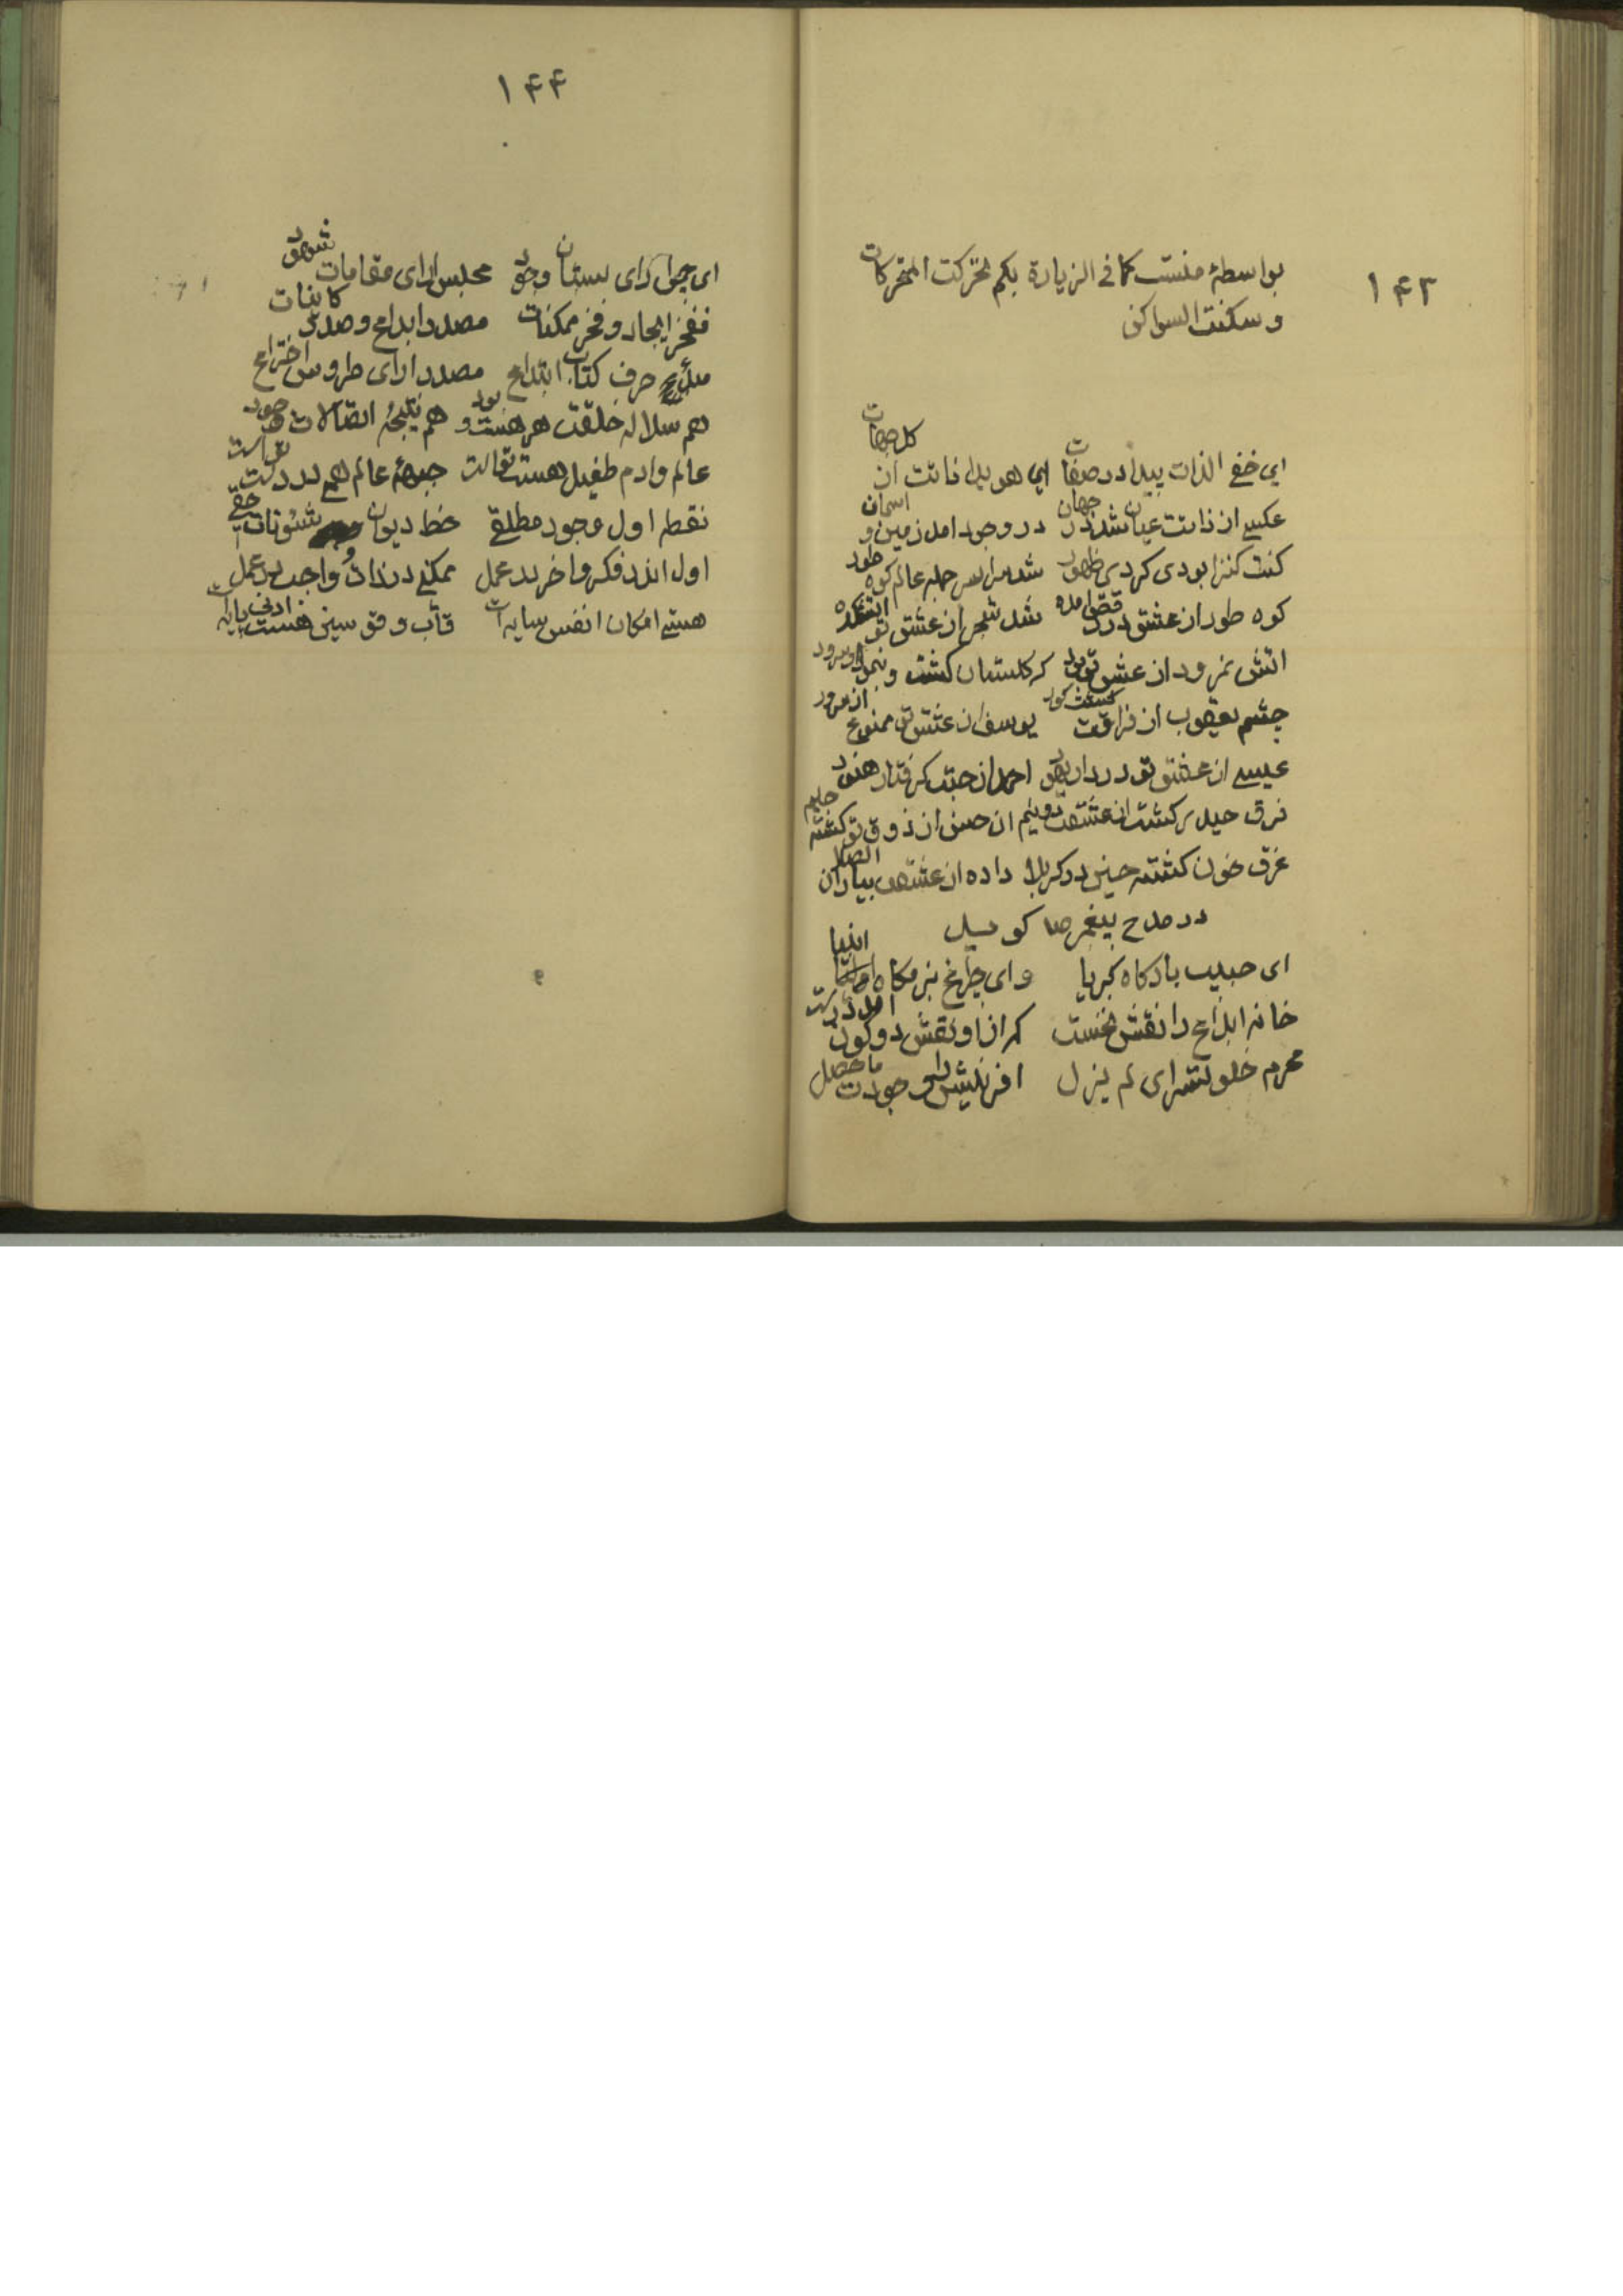 ۱۴۳
بواسطهٔ منست کما فی الزیارة بکم تحرکت المتحرکات
و سکنت السواکن
ای خفی الذات پیدا در صفات ای هویدا ذاتت از کل جهات
عکسی از ذاتت عیان شد در جهان در وجود امد زمین و اسمان
کنت کنزا بودی کردی ظهور شد سراسر جمله عالم کوه طور
کوه طور از عشق در رقص امده شد شجر از عشق تو اتشکده
اتش نمرود از عشق تو بود که کلستان کشت و
چشم یعقوب از فراقت کشت کور یوسف از عشق تو ممنوع از
عیسی از عشق تو در دار یهود احمد از حبت کرفتار هنود
فرق حیدر کشت از عشقت دونیم ان حسن از ذوق تو کشته
غرق خون کشته حسین در کربلا داده از عشقت بیاران الصلا
در مدح پیغمبر ص کوید
ای حبیب بارکاه کبریا وای چراغ بزمکاه انبیا
خانه ابداع را نقش نخست کز ان او نقش دو کون امد درست
محرم خلوتسرای لم یزل افرینش را وجودت ماحصل
۱۴۴
ای چمن ارای بستان وجود مجلس ارای مقامات شهود
مفخر ایجاد و فخر ممکنات مصدر ابداع و صدر کاینات
حرف کتاب ابتداع مصدر ارای طروس اختراع
هم سلاله خلقت هر هست و بود هم نتیجهٔ اتصالات وجود
عالم وادم طفیل هست تو است جبههٔ عالم همه بر در
نقطه اول وجود مطلقی خط دیوان شئونات حقی
اول اندر فکر و اخر در عمل ممکنی در ذات و واجب در عمل
هستی امکان انفس سایه است قاب و قوسین هست ادنی پایه